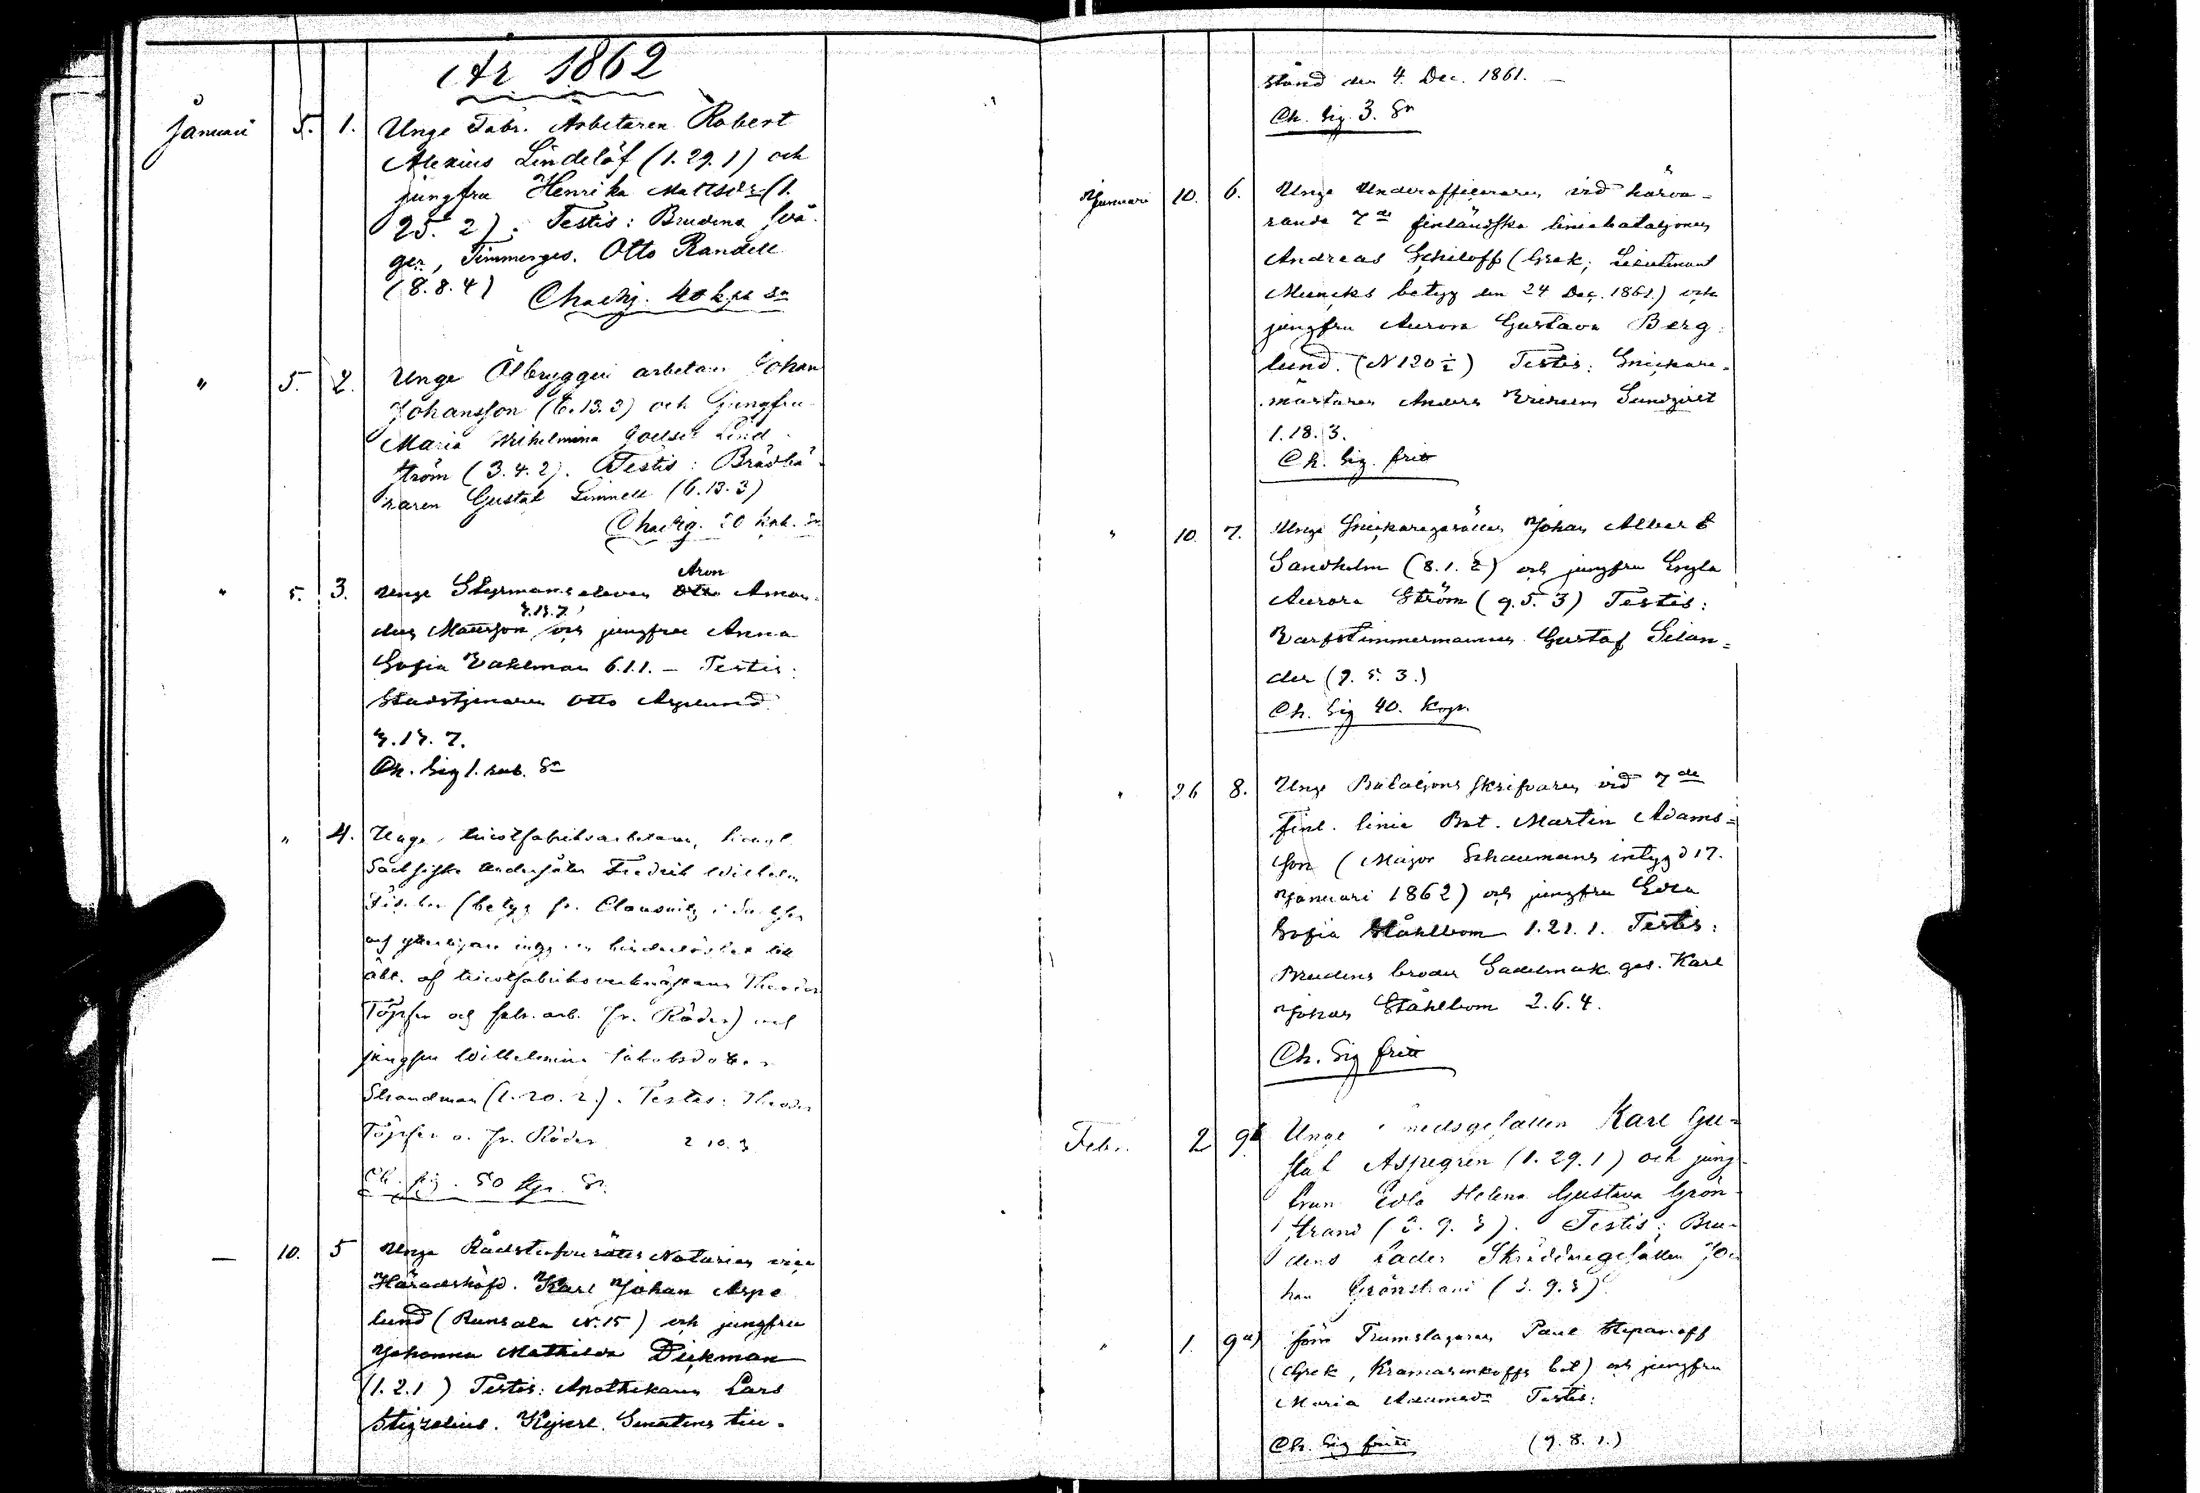 År 1862
Januari 5. 1. Unge Fabr. Arbetaren Robert
Alexius Lindelöf (1. 29. 1) och
jungfru Henrika Mattsdr (1.
25. 2). Testis: Brudens Svå-
ger, Timmerges. Otto Randell
(8. 8. 4) Cha Sig. 40 kpk Sr
" 5. 2. Unge Ölbryggeri arbetaren Johan
Johansson (6. 13. 3) och Jungfru
Maria Wilhelmina Lind-
ström (3. 4. 2). Testis: Brädbä-
raren Gustaf Limnell (6. 13. 3)
Cha Sig. 20 kpk. Sr
" 5. 3. Unge Styrmans eleven Otto Aron Aman-
dus Mattsson och jungfru Anna
Sofia Wahlman 6. 1. 1. – Testis:
Stadstjenaren Otto Asplund
7.
Ch. Sig 1. rub. Sr
" 4. Unge tricotfabriksarbetaren, 
Sachsiske undersåten Fredrik Wilhelm
Fischer (betyg fr. Clausnitz i
hinderlöshet
af tricotfabriks Theodor
Töpfer och fabr. arb. Fr. Röder) och
jungfru Wilhelmina Jakobsdotter
Strandman (1. 20. 2.). Testes: Theodor
Töpfer o. Fr. Röder 2 10. 3
Ch. sig. 50 Kp. Sr.
— 10. 5 Unge Rådstufvurätts Notarien vice
Häradshöfd. Karl Johan Aspe-
lund (Runsala N. 15) och jungfru
Johanna Mathilda Dickman
(1. 2. 1) Testis: Apothekaren Lars
Stigzelius. Kejserl. Senatens till-
stånd den 4. Dec. 1861. –
Ch. Sig. 3. Sr
Januari 10. 6. Unge Underofficeraren vid härva-
rande 7de finländska liniebataljonen
Andreas Schiloff (Grek; Lieutenant
Muncks betyg den 24 Dec. 1861) och
jungfru Aurora Gustava Berg-
lund. (N 120 ) Testis: Snickare-
mästaren Anders Sundqvist
1. 18. 3.
Ch. Sig. fritt
" 10. 7. Unge Snickaregesällen Johan Albert
Sandholm (8. 1. 2) och jungfru Engla
Aurora Ström (9. 5. 3) Testis:
Varfstimmermannen Gustaf Selan-
der (9. 5. 3.)
Ch. Sig 40. Kop.
" 26 8. Unge Bataljons skrifvaren vid 7de
Finl. linie Bat. Martin Adams-
son (Major Schaumans intyg d 17.
Januari 1862) och jungfru Edla
Sofia Ståhlbom 1. 21. 1. Testis:
Brudens broder Sadelmak. ges. Karl
Johan Ståhlbom 2. 6. 4.
Ch. Sig fritt
Febr. 2 9b Unge Smedsgesällen Karl Gu-
staf Aspegren (1. 29. 1) och jung-
frun Edla Helena Gustava Grön-
strand (3. 9. 3). Testis: Bru-
dens Fader Skräddaregesällen Jo-
han Grönstrand (3. 9. 3).
" 1. 9a) förre Trumslagaren Paul Stepanoff
(Grek, Kramarenkoffs bet) och jungfru
Maria Adamsdr Testis:
Ch. Sig fritt (9. 8. 1.)